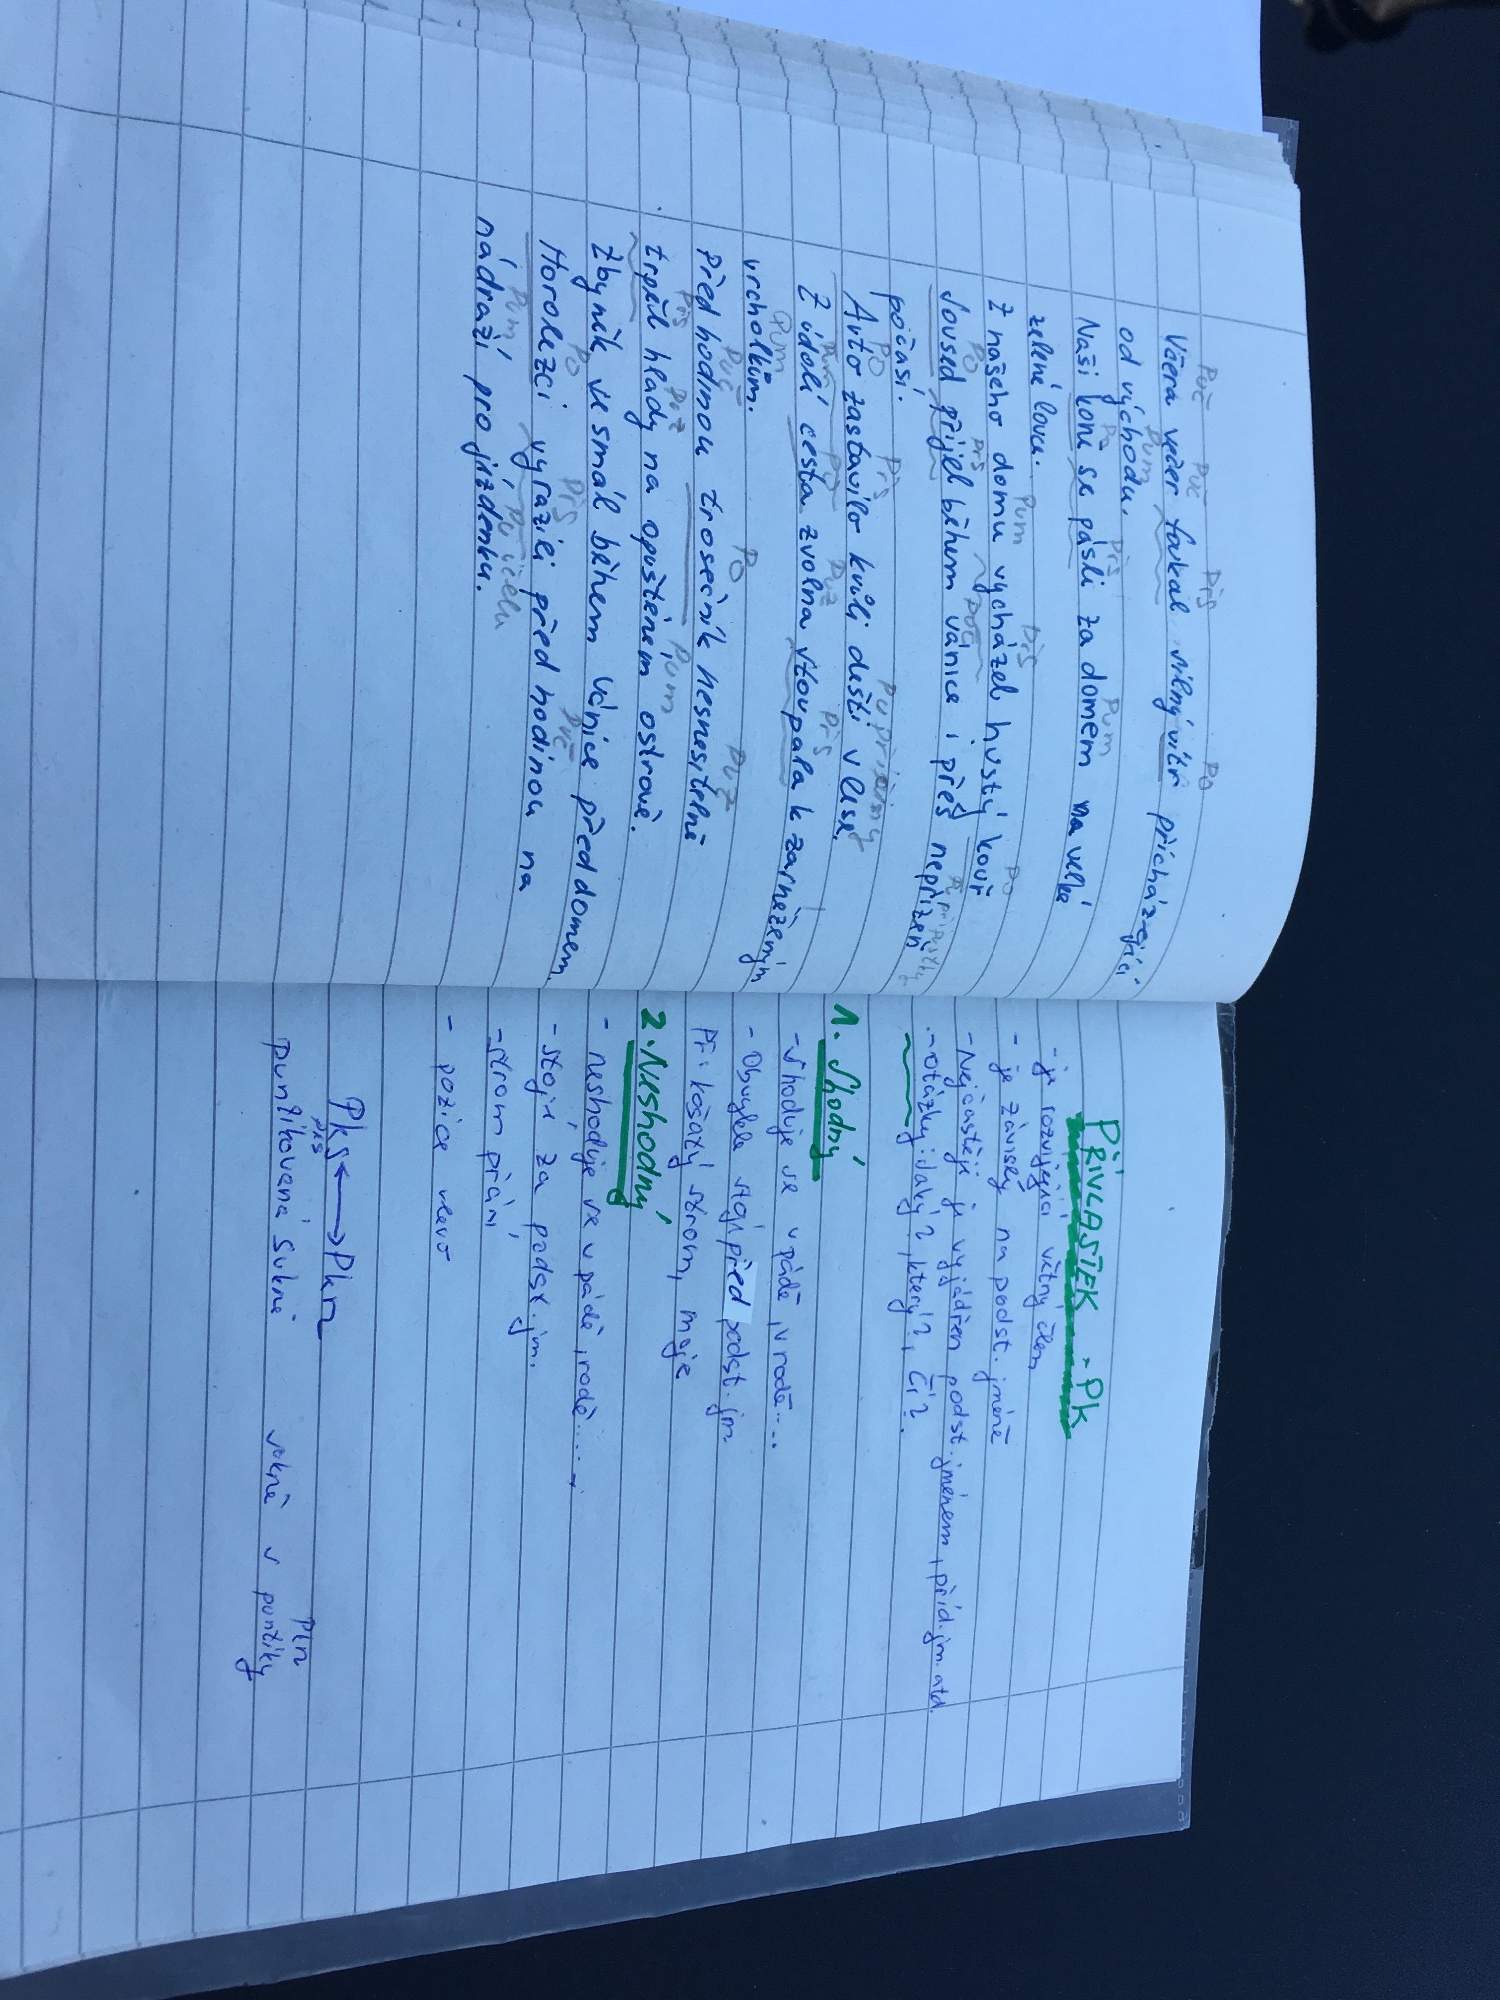 Puč Puč Přs Po
Včera večer foukal silný vítr přicházející
Pum
od východu.
Po Přs Pum
Naši koně se pásli za domem na velké
zelené louce.
Pum Přs Po
Z našeho domu vycházel hustý kouř
Po Přs Puč Pu přípustky
Soused přijel během vánice i přes nepřízeň
počasí.
Po Přs Pu příčiny
Auto zastavilo kvůli dešti v lese.
Pum Po Puz Přs
Z údolí cesta zvolna stoupala k zasněženým
Pum
vrcholkům.
Puč Po Puz
Před hodinou trosečník nesnesitelně
Přs Puz Pum
trpěl hlady na opuštěném ostrově.
Zbyněk se smál během vánice před domem.
Po Přs Puč
Horolezci vyrazili před hodinou na
Pum Pu účelu
nádraží pro jízdenku.
PŘÍVLASTEK - Pk
- je rozvíjející větný člen
- je závislý na podst. jméně
- Nejčastěji je vyjádřen podst. jménem, příd. jm. atd.
- otázky: Jaký?, který?, čí?.
1. Shodný
- Shoduje se v pádě, v rodě....
- Obvykle stojí před podst. jm
Př: košatý strom, moje
2. Neshodný
- neshoduje se v pádě, rodě....
- stojí za podst. jm.
- strom přání
- pozice vlevo
Pks ↔ Pkn
Pks Pkn
puntíkovaná sukně sukně s puntíky